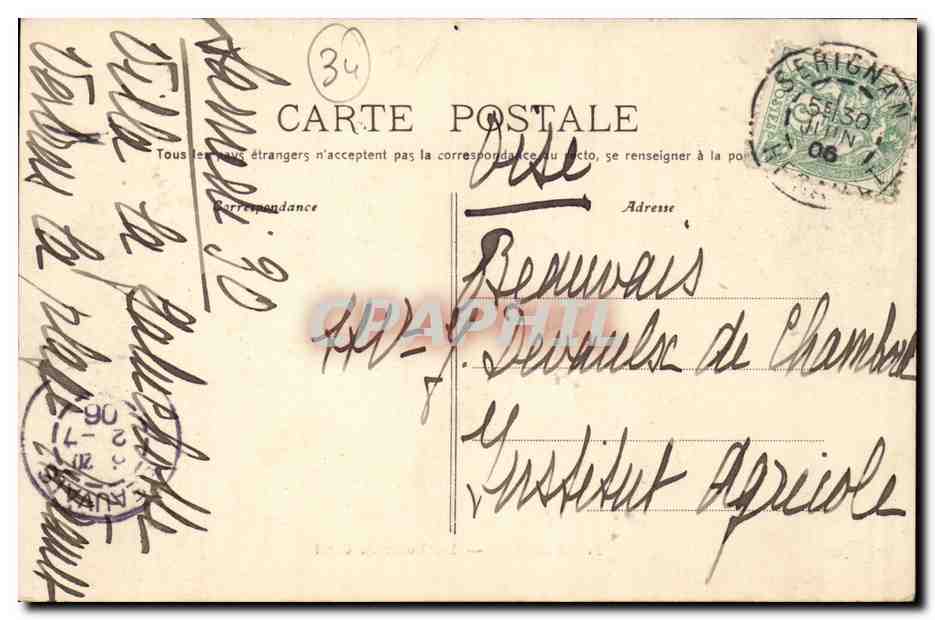 34
CARTE POSTALE
Tous les pays étrangers n'acceptent pas la correspondance au recto, se renseigner à la po
Correspondance
Adresse
SERIGNAN
5E 30
JUIN
06
HERAULT
Oise
Beauvais
J. Devaulx de Chambord
Institut Agricole
Samedi 30
Ville la
Vendres la plage
BEAUVAIS
2 -7
06
CPRAPHIL